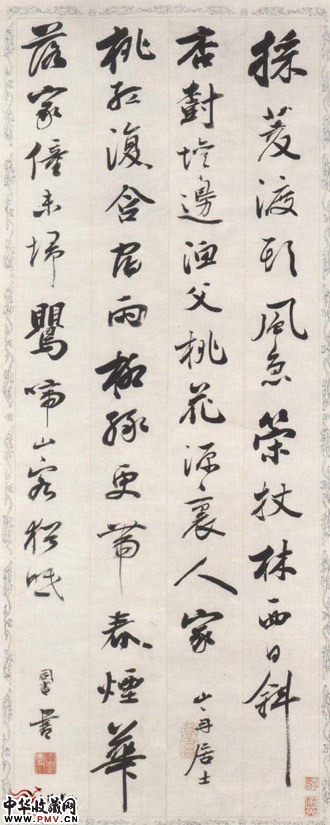 採菱渡頭風急策杖林西日斜
杏樹壇邊漁父桃花源裏人家 山舟居士
桃紅復含宿雨柳綠更帶春煙華
落家僮未掃鸎啼山客猶眠
同書書
中华收藏网
WWW.PMV.CN